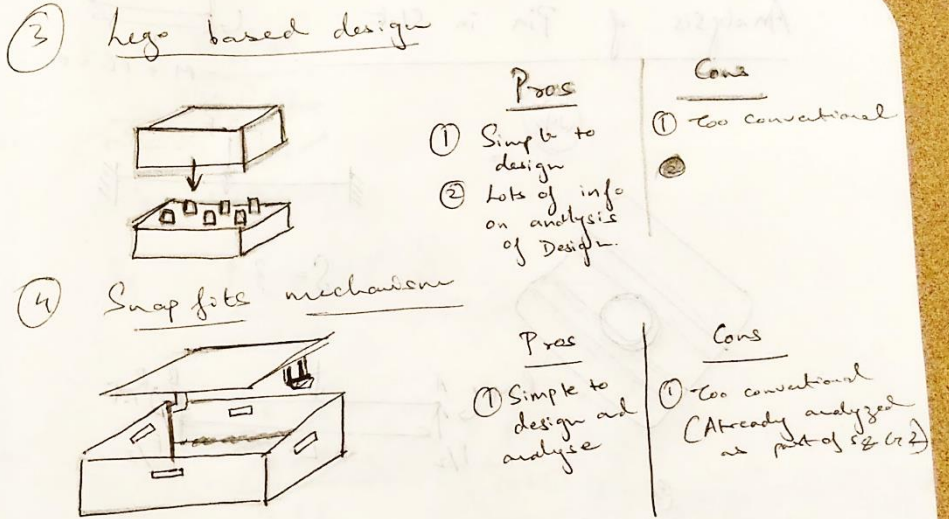 ③ Lego based design
Pros
① Simple to
design
② Lots of info
on analysis
of Design.
Cons
① Too conventional
②
④ Snap fits mechanism
Pros
① Simple to
design and
analyse
Cons
① Too conventional
(Already analyzed
as part of